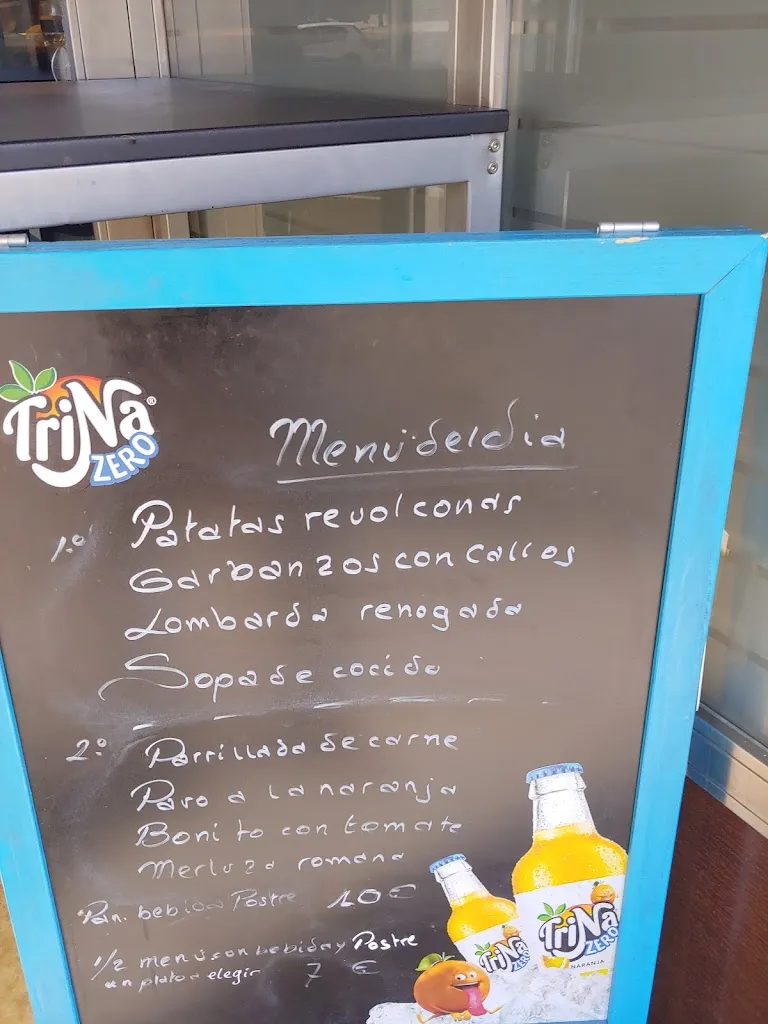 TriNa®
ZERO
Menú del dia
1.º Patatas revolconas
Garbanzos con callos
Lombarda renogada
Sopa de cocido
2.º Parrillada de carne
Pavo a la naranja
Bonito con tomate
Merluza romana
Pan. bebida Postre 10€
1/2 menú con bebida y Postre
un plato a elegir 7 €
TriNa
ZERO
TriNa
ZERO
NARANJA